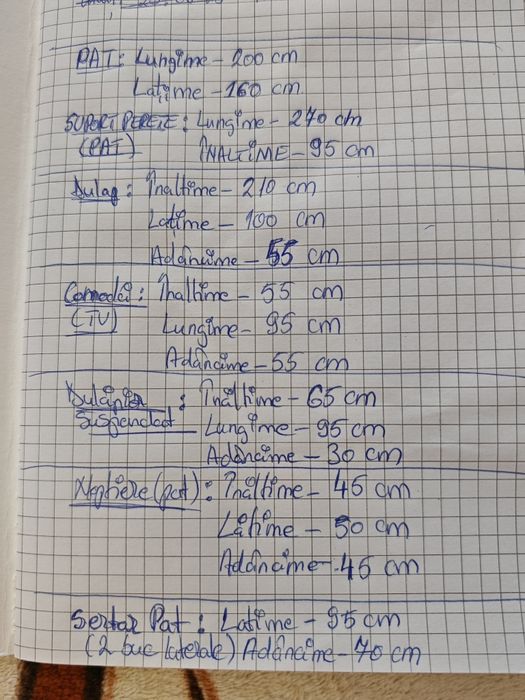 PAT: Lungime - 200 cm
Lațime - 160 cm
SUPORT PERETE: Lungime - 270 cm
(PAT) ÎNALȚIME - 95 cm
Dulap: Înalțime - 210 cm
Lațime - 100 cm
Adâncime - 55 cm
Comodă: Înalțime - 55 cm
(TV) Lungime - 95 cm
Adâncime - 55 cm
Dulăpior : Înălțime - 65 cm
Suspendat Lungime - 95 cm
Adâncime - 30 cm
Noptiere (pat): Înălțime - 45 cm
Lățime - 50 cm
Adâncime - 45 cm
Sertar Pat: Lațime - 95 cm
(2 buc laterale) Adâncime - 70 cm